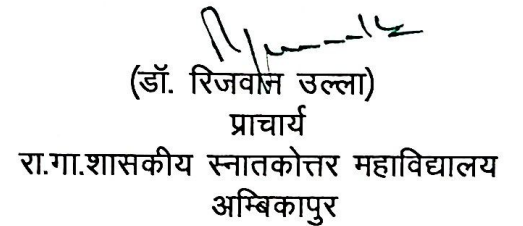 (डॉ. रिजवान उल्ला)
प्राचार्य
रा.गा.शासकीय स्नातकोत्तर महाविद्यालय
अम्बिकापुर